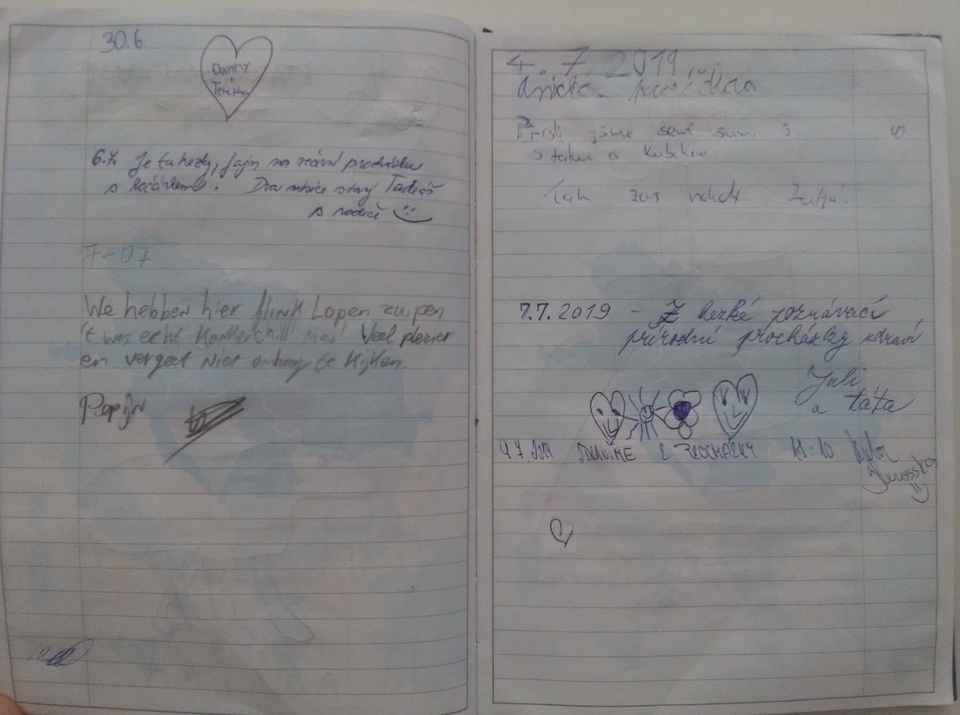 30.6
Danny
+
Terezka
6.7. Je tu hezky, fajn na ranní procházku
s kočárkem. Dva měsíce starý Tadeáš
s rodiči
7-07
We hebben hier flink Lopen zuipen
't was echt maar Veel plezier
en vergeet niet omhoog te Kijken.
Pepijn
4. 7. 2019,
Přišli jsme sem sami, s
s tatou a Kubíkem.
Tak zas někdy.
7.7.2019 - Z hezké poznávací
přírodní procházky zdraví
Juli
a táta
9.7.2019 DĚKUJEME Z PROCHÁZKY 11:10